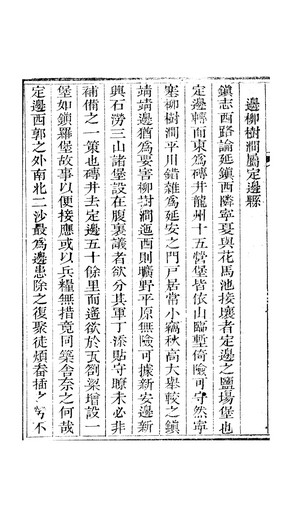 邊柳樹澗屬定邊縣
鎮志西路論延鎮西隣寧夏與花馬池接壤者定邊之鹽場堡也
定邊轉而東為磚井龍州十五營堡皆依山臨塹倚險可守然寧
塞柳樹澗平川錯雜為延安之門戶居常小竊秋高大舉較之鎮
靖靖邊猶為要害柳樹澗迤西則曠野平原無險可據新安邊新
興石澇三山諸堡設在腹裏議者欲分其軍丁添貼守瞭未必非
補偹之一策也磚井去定邊五十餘里而遙欲於瓦劄梁增設一
堡如鎖羅堡故事以便接應或以兵糧無措竟同築舍柰之何哉
定邊西郭之外南北二沙最為邊患除之復聚徒煩畚插